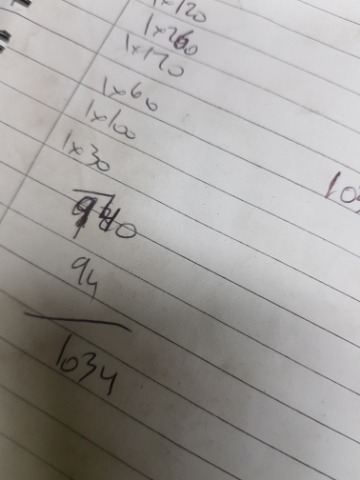 1x120
1x260
1x120
1x60
1x100
1x30
940
94
1034